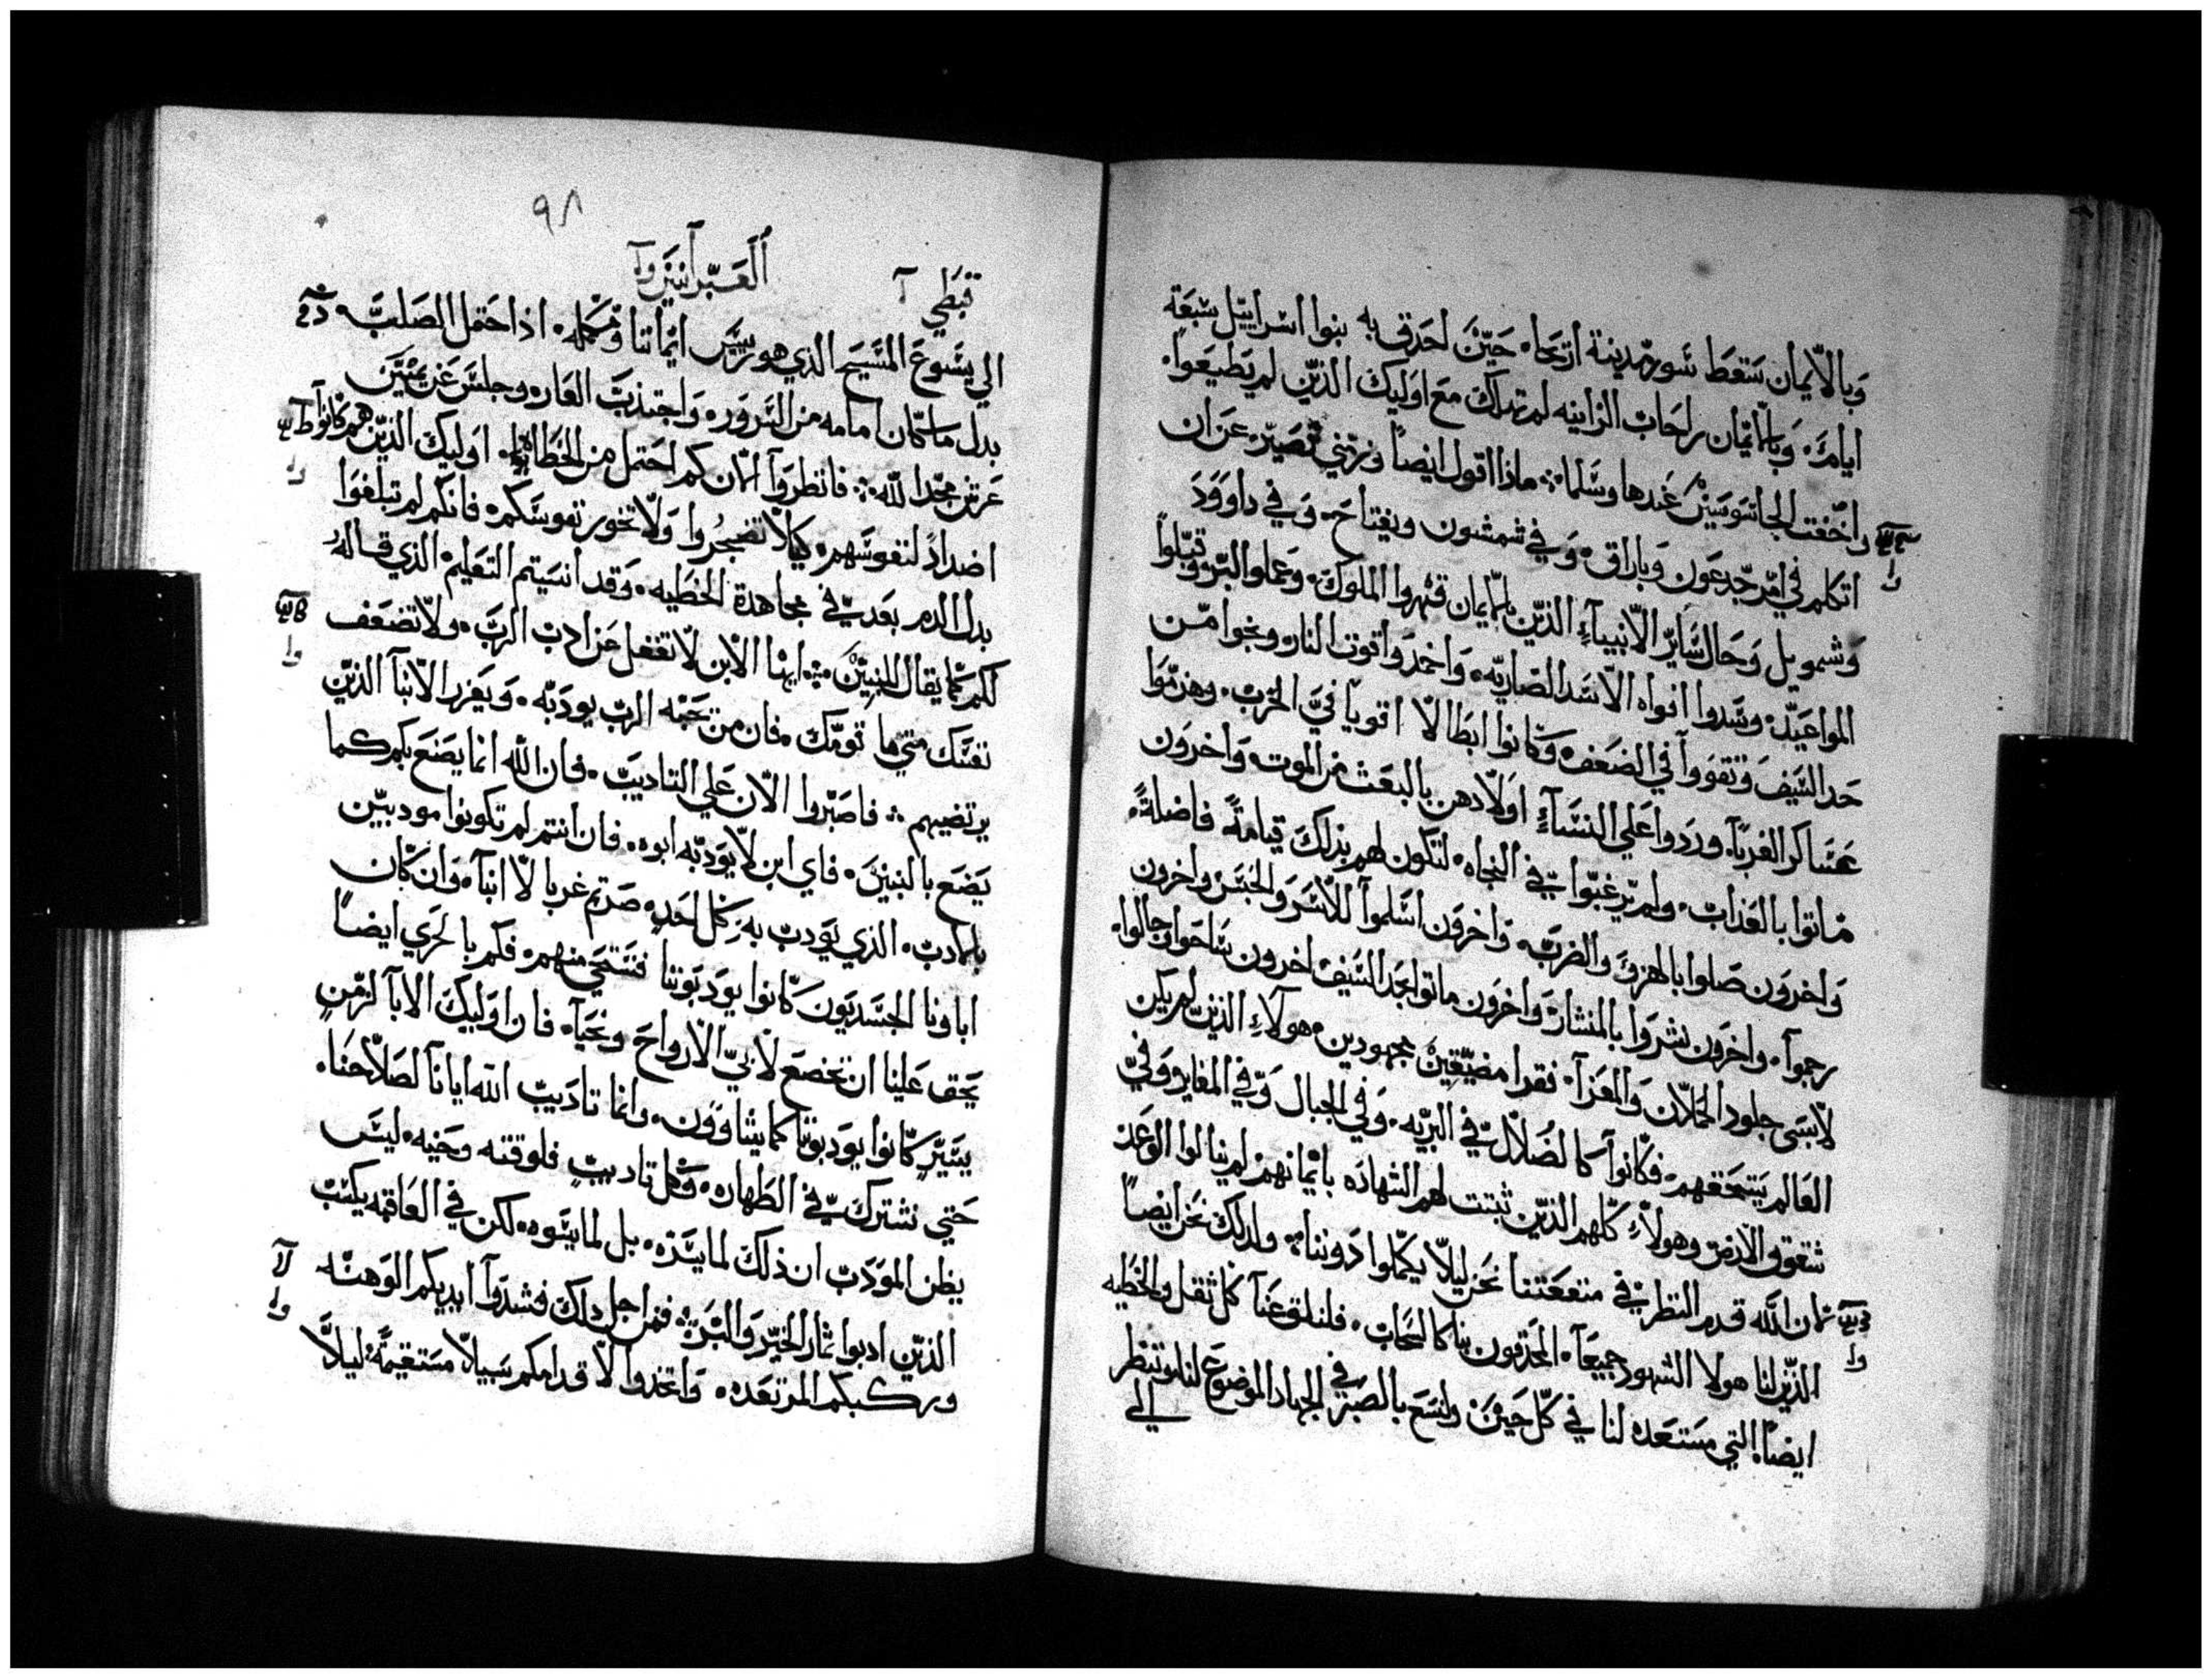 وبالايمان سقط سور مدينة اريحا، حين احدق به بنوا اسراييل سبعة
ايام، وبالايمان راحاب الزانيه لم تهلك مع اوليك الذين لم يطيعوا،
واخفت الجاسوسين عندها وسلما، ماذا اقول ايضاً وزمني قصير، عن ان
اتكلم في امر جدعون وباراق، وفي شمشون ويفتاح، وفي داوود
وشمويل وحال ساير الانبياء الذين بالايمان قهروا الملوك، وعملوا البر وقبلوا
المواعيد، وسدوا افواه الاسد الضاريه، واخمدوا قوت النار، ونجوا من
حد السيف، وتقووا في الضعف، وكانوا ابطالا اقويا في الحرب، وهزموا
عساكر الغربا، وردوا علي النساء اولادهن بالبعث من الموت، واخرون
ماتوا بالعذاب، ولم يرغبوا في النجاه، لتكون لهم بذلك قيامةً فاضلةً،
واخرون صلوا بالهزو والضرب، واخرون اسلموا للاسر والحبس، واخرون
رجموا، واخرون نشروا بالمنشار، واخرون ماتوا بحد السيف، اخرون ساحوا وجالوا،
لابسي جلود الحملان والمعزا، فقرا مضيقين مجهودين، هولاء الذين لم يكن
العالم يستحقهم، فكانوا كالضلال في البريه، وفي الجبال وفي المغاير وفي
شقوق الارض، وهولاء كلهم الذين ثبتت لهم الشهاده بايمانهم، لم ينالوا الوعد
لان الله قدم النظر في منفعتنا نحن ليلا يكملوا دوننا، ولذلك نحن ايضاً
الذين لنا هولا الشهود جميعا، المحدقون بنا كالسحاب، فلنلق عنا كل ثقل والخطيه
ايضا، التي مستعده لنا في كل حين، ولنسع بالصبر في الجهاد الموضوع لنا، وننظر
الي
٩٨
قبطي
العبرانيين
الي يسوع المسيح الذي هو رييس ايماننا ومكمله، اذ احتمل الصلب،
بدل ما كان امامه من السرور، واجتذب العار، وجلس عن يمين
عرش مجد الله، فانظروا الان كم احتمل من الخطاة، اوليك الذين هم كانوا
اضداداً لنفوسهم، كيلا تضجروا ولا تخور نفوسكم، فانكم لم تبلغوا
بدل الدم بعد في مجاهدة الخطيه، وقد انسيتم التعليم، الذي قاله
لكم كما يقال للبنين، ايها الابن لا تغفل عن ادب الرب، ولا تضعف
نفسك متي ما تومك، فان من حبه الرب يودبه، ويعزر الابنا الذين
يرتضيهم، فاصبروا الان علي التاديب، فان الله انما يصنع بكم كما
يضع بالبنين، فاي ابن لا يودبه ابوه، فان انتم لم تكونوا مودبين
بالادب، الذي يودب به كل احد، صرتم غربا لا ابنا، وان كان
اباونا الجسديون كانوا يودبوننا فنستحي منهم، فكم بالحري ايضاً
يحق علينا ان نخضع لابي الارواح ونحيا، فان اوليك الابا لزمن
يسير كانوا يودبوننا كما يشاوون، وانما تاديب الله ايانا لصلاحنا،
حتي نشترك في الطهاره، وكل تاديب فلوقته وحينه، ليس
يظن المودب ان ذلك لما يسره، بل لما يسوه، لكن في العاقبه يكسب
الذين ادبوا ثمار الخير والبر، فمن اجل ذلك فشدوا ايديكم الوهنه
وركبكم المرتعده، واتخذوا لاقدامكم سبيلا مستقيمةً، ليلا